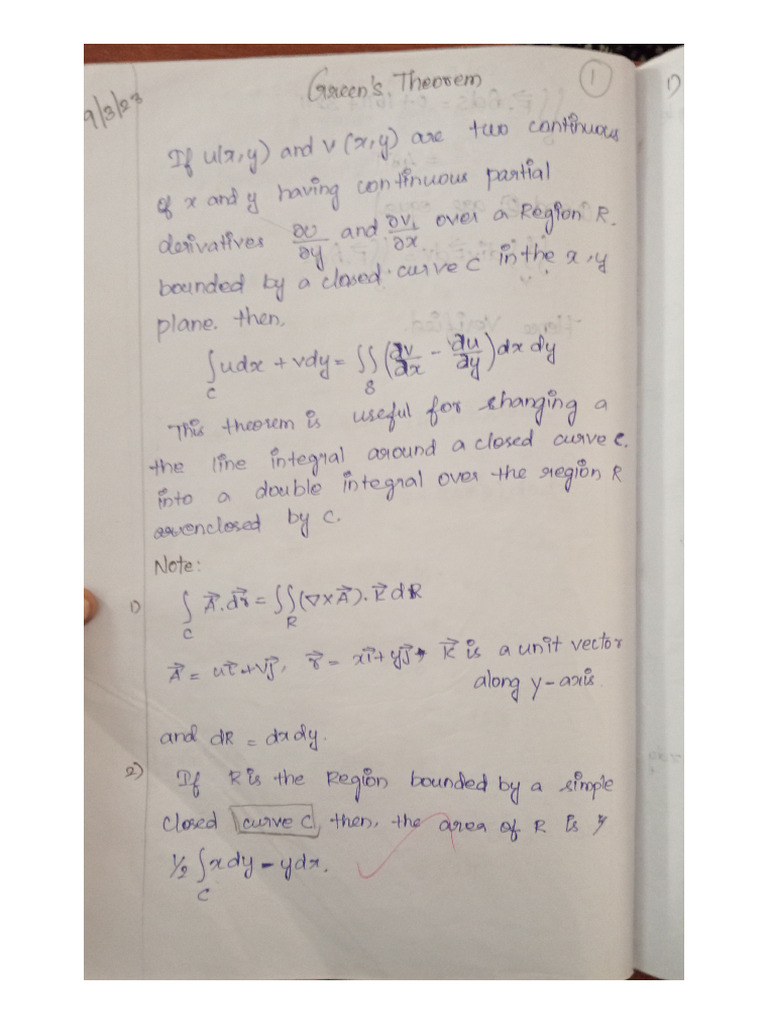 9/3/23
Green's Theorem
1
1)
If u(x,y) and v(x,y) are two continuous
of x and y having continuous partial
derivatives ∂u/∂y and ∂v/∂x over a Region R.
bounded by a closed curve C in the x,y
plane. then,
∫_C udx + vdy = ∫∫_S (∂v/∂x - ∂u/∂y) dx dy
This theorem is useful for changing a
the line integral around a closed curve C.
into a double integral over the region R
enclosed by C.
Note:
1) ∫_C A⃗.dr⃗ = ∫∫_R (∇×A⃗).K⃗ dR
A⃗ = ui⃗+vj⃗, r⃗ = xi⃗+yj⃗, K⃗ is a unit vector
along y-axis.
and dR = dxdy.
2) If R is the Region bounded by a simple
closed curve C, then, the area of R is
½ ∫_C xdy - ydx.